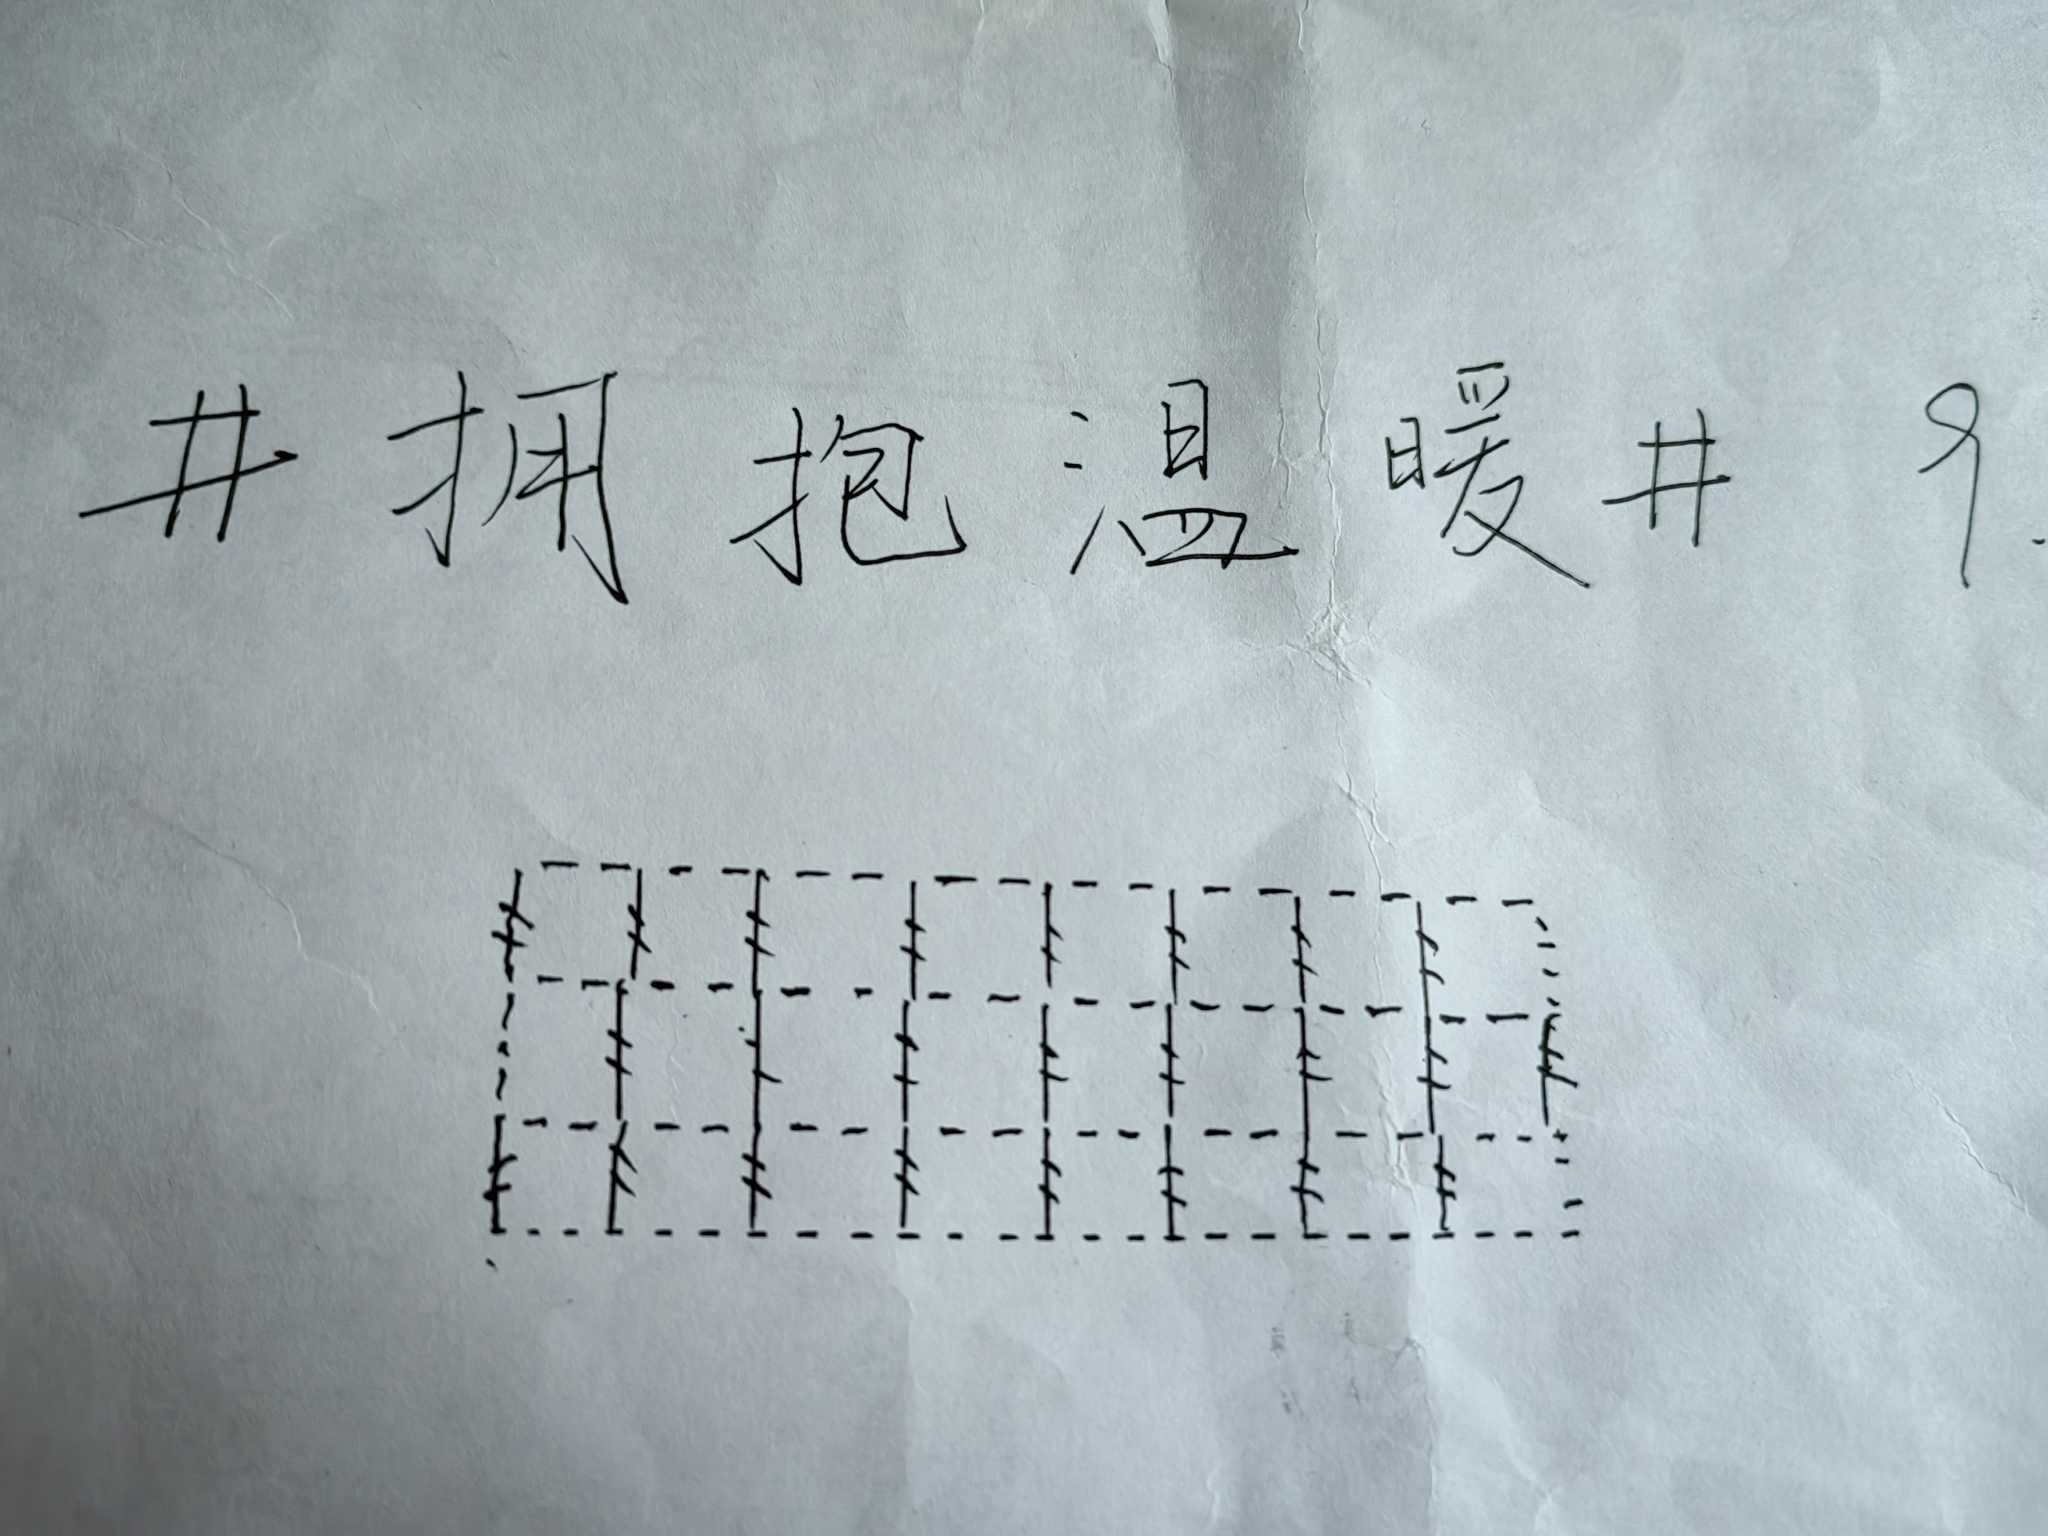 #拥抱温暖# 9.